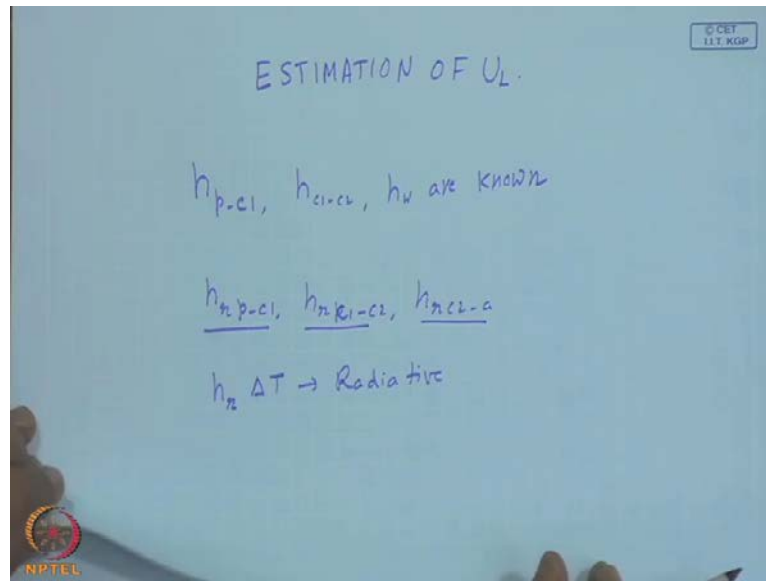 © CET
I.I.T. KGP
ESTIMATION OF U_L.
h_p-c1, h_c1-c2, h_w are known
h_r p-c1, h_r c1-c2, h_r c2-a
h_r ΔT → Radiative
NPTEL